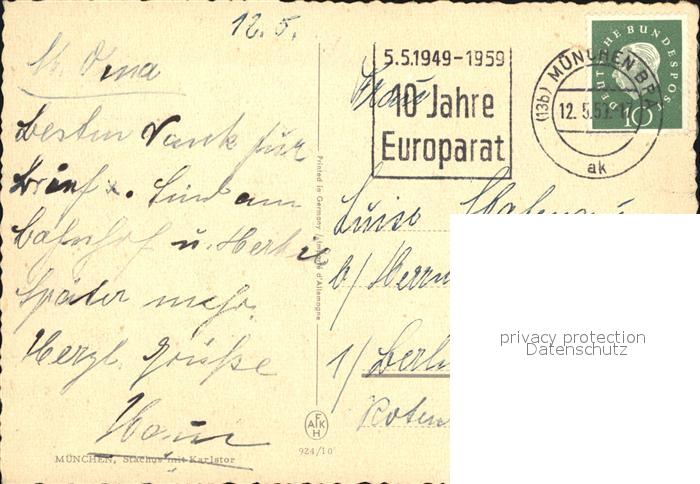 12. 5.
Lb. Oma
besten Dank für
Brief. Sind am
Bahnhof u.
später mehr.
Herzl. Grüße
Hans
MÜNCHEN, Stachus mit Karlstor
Printed in Germany / Imprimé d'Allemagne
AFKH
924/10
5.5.1949-1959
10 Jahre
Europarat
DEUTSCHE BUNDESPOST
10
(13b) MÜNCHEN BPA
12.5.59.-17
ak
Frau
Luise
b/ Herrn
1/ Berlin
privacy protection
Datenschutz